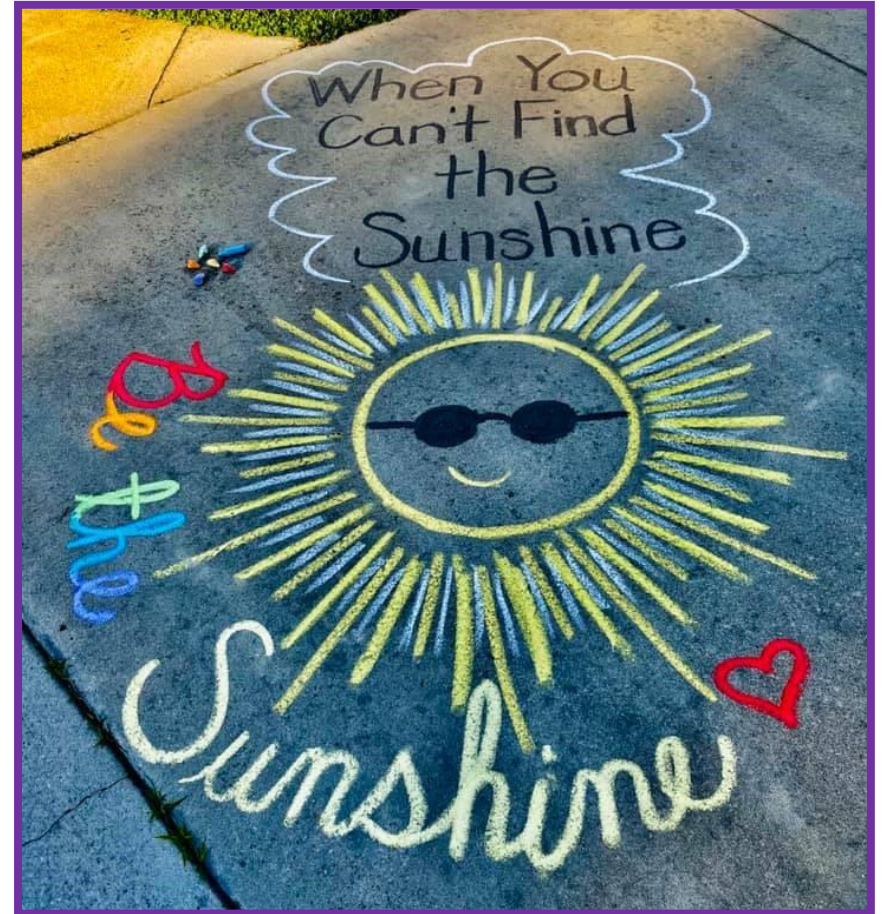 When You
Can't Find
the
Sunshine
Be
the
Sunshine